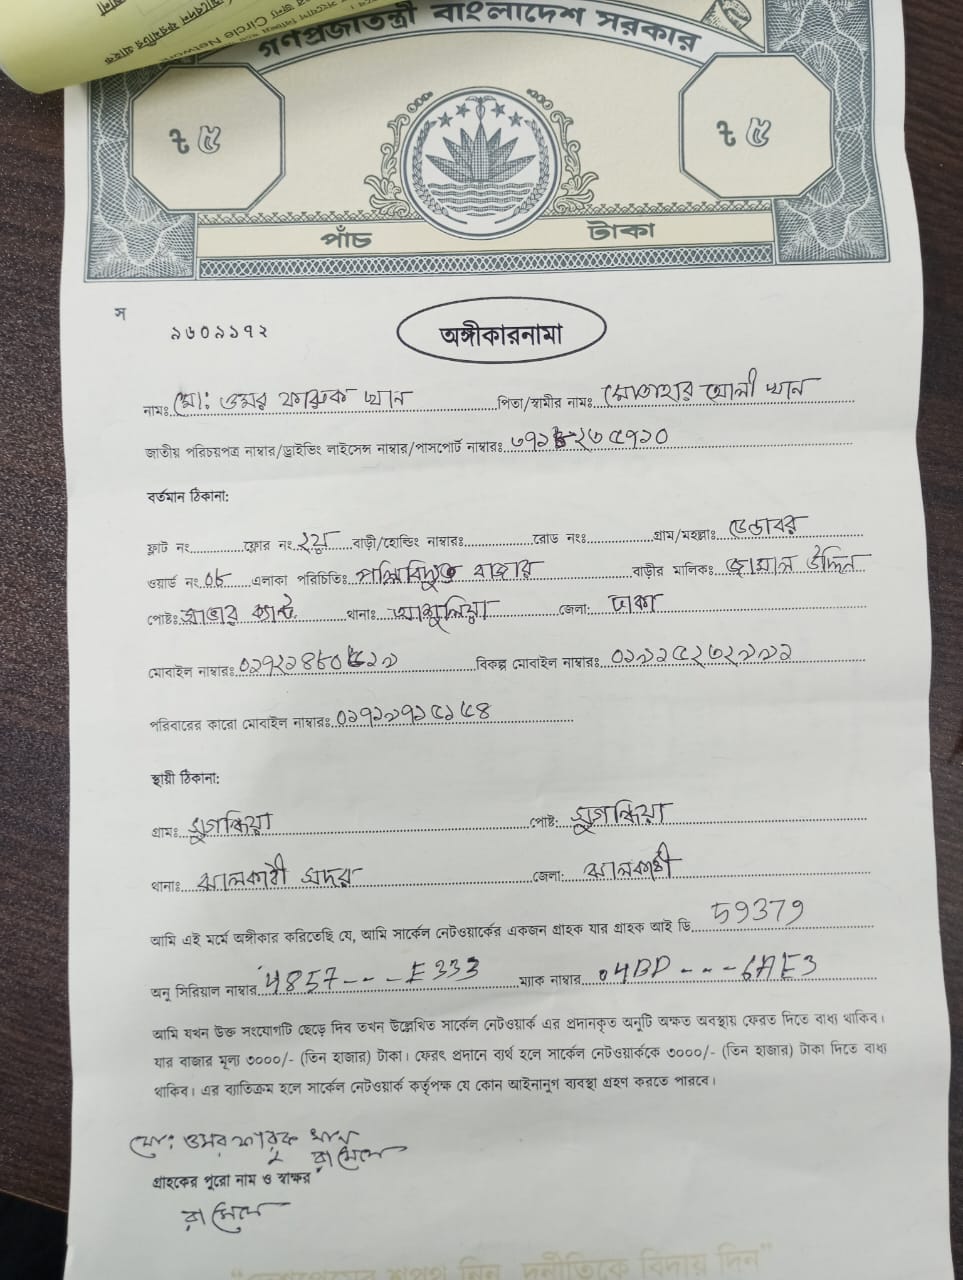 গণপ্রজাতন্ত্রী বাংলাদেশ সরকার
৳ ৫ ৳ ৫
পাঁচ টাকা
স
১৬০১১৭২
অঙ্গীকারনামা
নামঃ মো: ওমর ফারুক খান পিতা/স্বামীর নাম: মোতাহার আলী খান
জাতীয় পরিচয়পত্র নাম্বার/ড্রাইভিং লাইসেন্স নাম্বার/পাসপোর্ট নাম্বারঃ
বর্তমান ঠিকানা:
ফ্লাট নং ফ্লোর নং ২য় বাড়ী/হোল্ডিং নাম্বারঃ রোড নংঃ গ্রাম/মহল্লাঃ ডেন্ডাবর
ওয়ার্ড নং ০৮ এলাকা পরিচিতিঃ পল্লিবিদ্যুত বাজার বাড়ীর মালিকঃ জামাল উদ্দিন
পোষ্টঃ সাভার ক্যান্ট থানাঃ আশুলিয়া জেলা: ঢাকা
মোবাইল নাম্বারঃ বিকল্প মোবাইল নাম্বারঃ
পরিবারের কারো মোবাইল নাম্বারঃ
স্থায়ী ঠিকানা:
গ্রামঃ সুগন্ধিয়া পোষ্ট: সুগন্ধিয়া
থানাঃ ঝালকাঠী সদর জেলা: ঝালকাঠী
আমি এই মর্মে অঙ্গীকার করিতেছি যে, আমি সার্কেল নেটওয়ার্কের একজন গ্রাহক যার গ্রাহক আই ডি 59379
অনু সিরিয়াল নাম্বার 4857---E333 ম্যাক নাম্বার 04BD---6AE3
আমি যখন উক্ত সংযোগটি ছেড়ে দিব তখন উল্লেখিত সার্কেল নেটওয়ার্ক এর প্রদানকৃত অনুটি অক্ষত অবস্থায় ফেরত দিতে বাধ্য থাকিব।
যার বাজার মূল্য ৩০০০/- (তিন হাজার) টাকা। ফেরৎ প্রদানে ব্যর্থ হলে সার্কেল নেটওয়ার্ককে ৩০০০/- (তিন হাজার) টাকা দিতে বাধ্য
থাকিব। এর ব্যতিক্রম হলে সার্কেল নেটওয়ার্ক কর্তৃপক্ষ যে কোন আইনানুগ ব্যবস্থা গ্রহণ করতে পারবে।
মো: ওমর ফারুক খান
রাসেল
গ্রাহকের পুরো নাম ও স্বাক্ষর
রাসেল
দুর্নীতিকে বিদায় দিন"